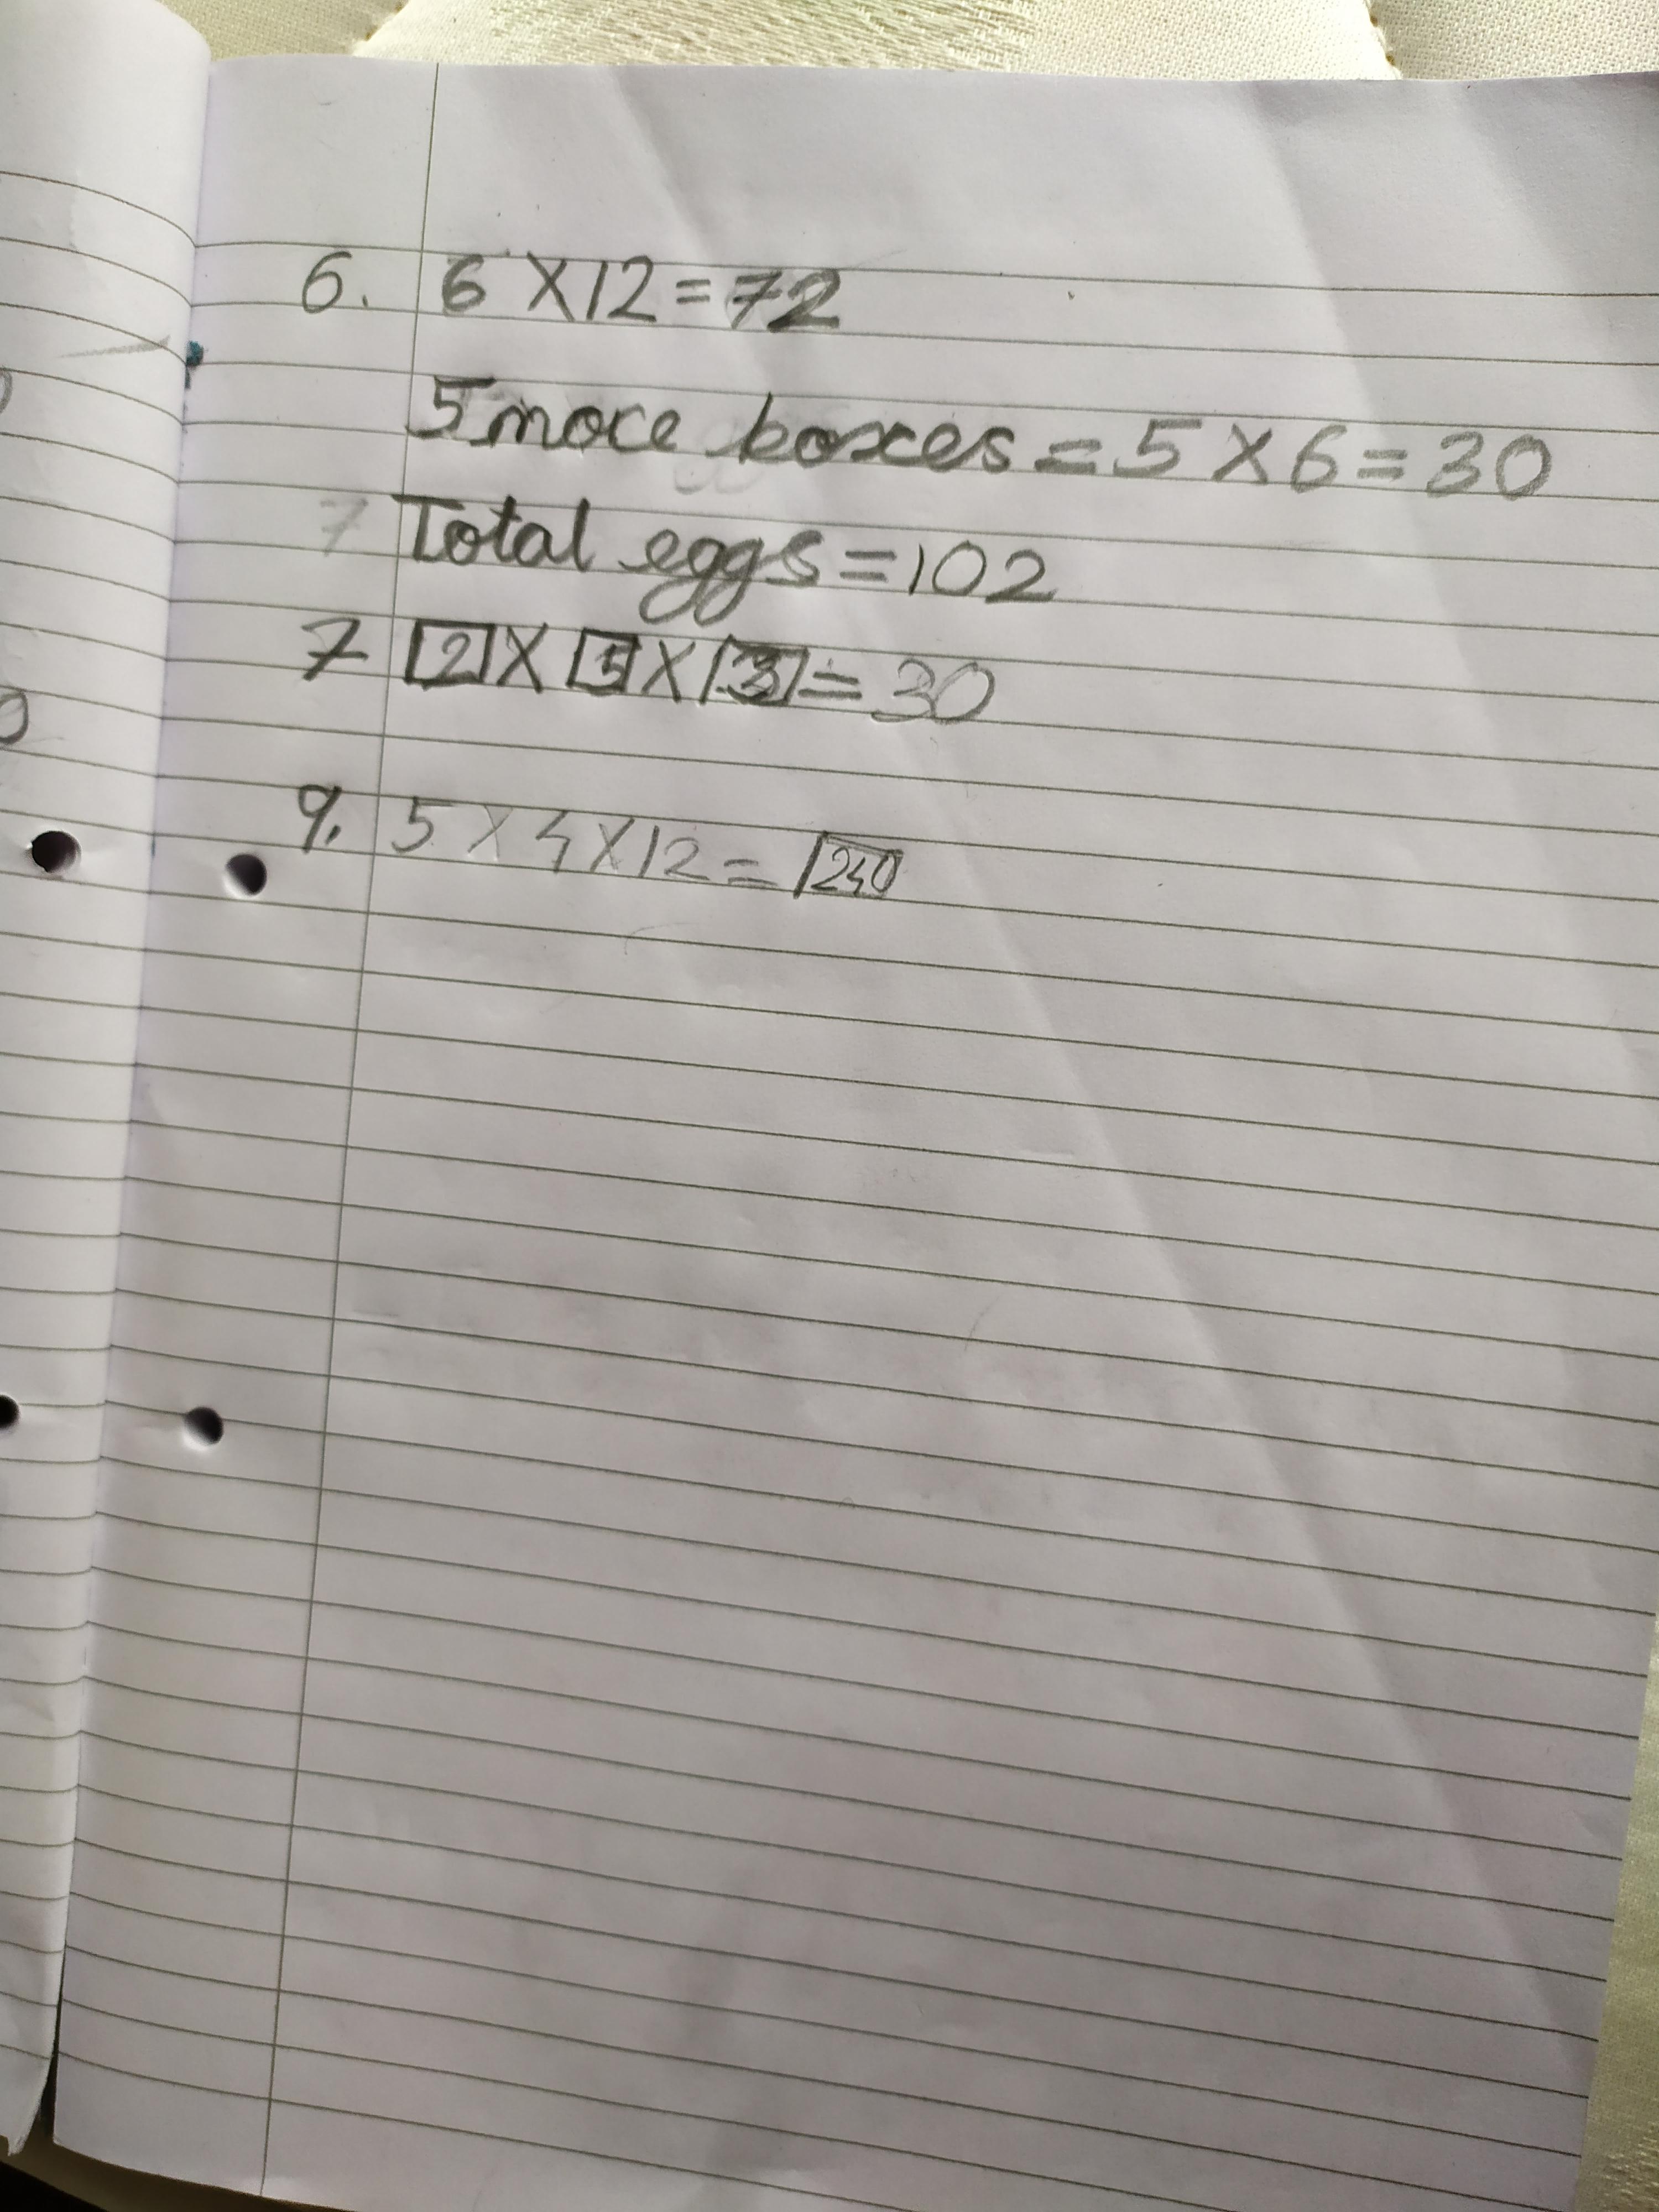 6. 6 X 12 = 72
5 more boxes = 5 X 6 = 30
7 Total eggs = 102
7 2 X 5 X 3 = 30
9. 5 X 4 X 12 = 240